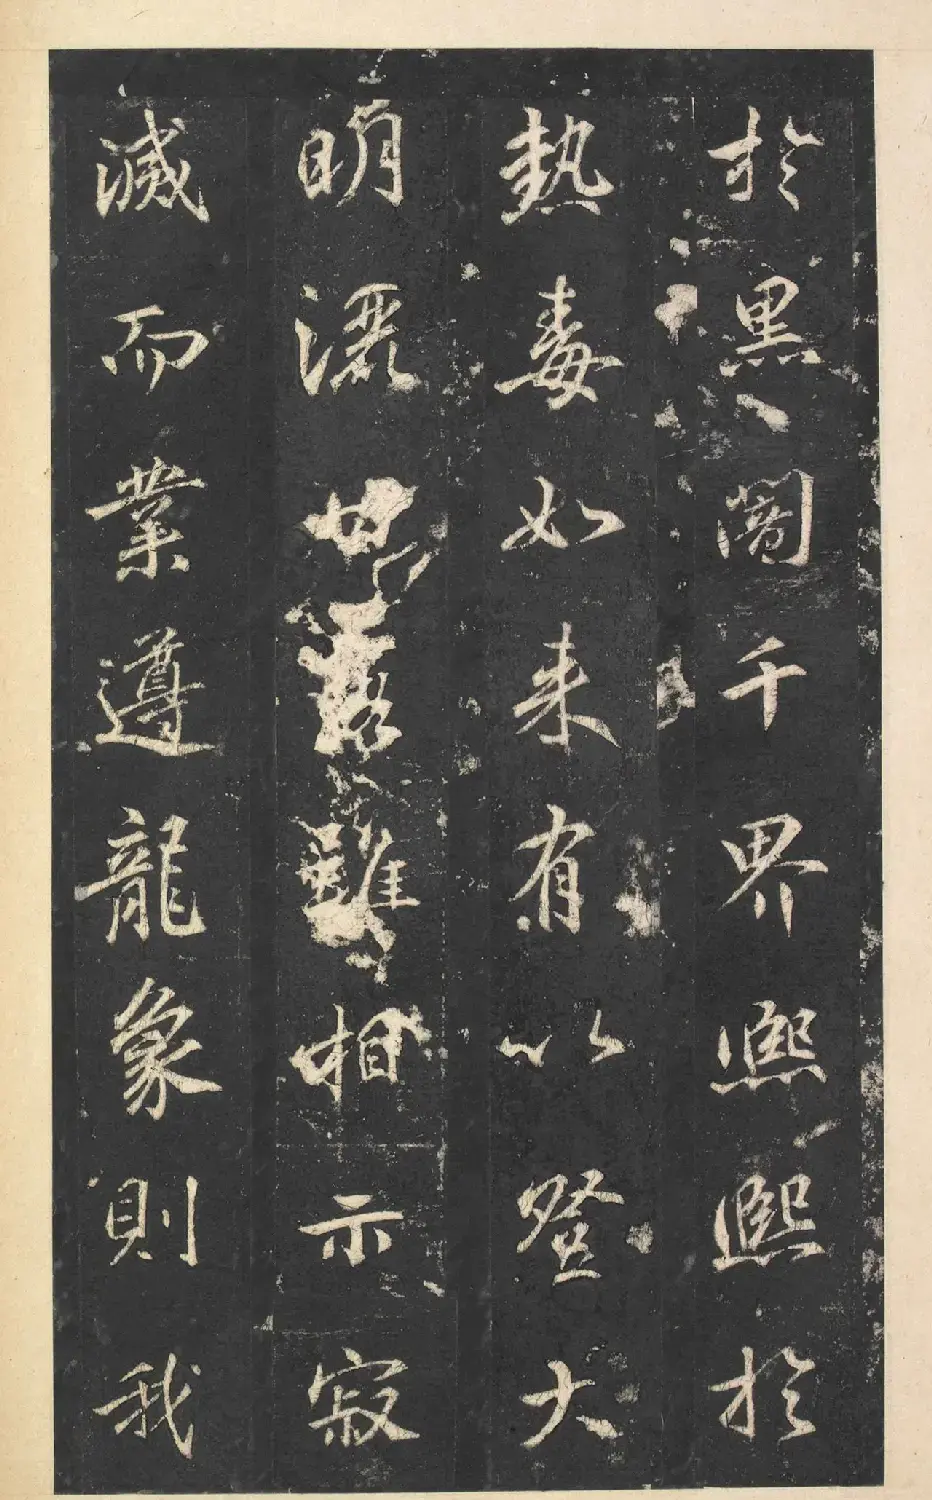 於黑闇千界熙熙於
熱毒如来有以登大
明灑甘露雖相示寂
滅而業遵龍象則我